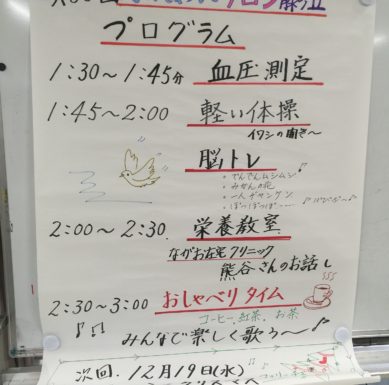 プログラム
1:30〜1:45分 血圧測定
1:45〜2:00 軽い体操
イワシの開き〜
脳トレ
・でんでんムシムシ
・みかんの花
・一人ジャンケン
・ぽっぽっぽ
2:00〜2:30 栄養教室
ながお在宅クリニック
熊谷さんのお話し
2:30〜3:00 おしゃべりタイム
コーヒー、紅茶、お茶
みんなで楽しく歌う〜
次回. 12月19日(水)